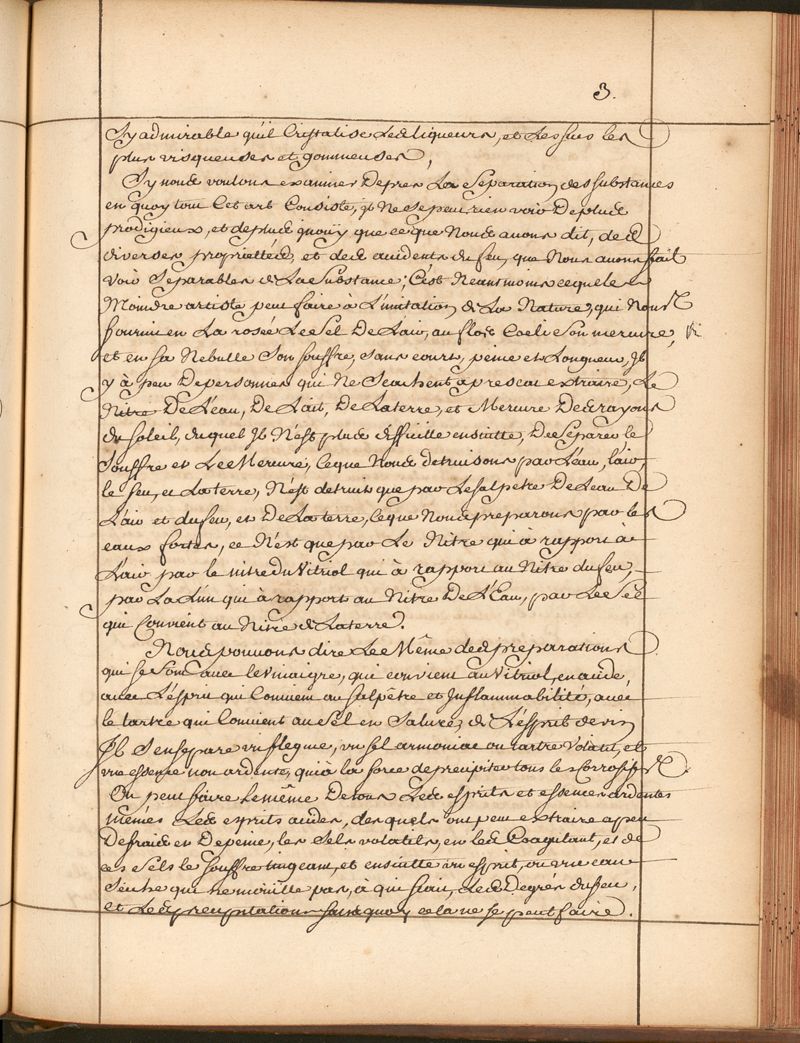 3.
Sy admirable quil Cristalise Les liqueurs, et Les sucs les
plus visqueuses et gommeuses,
Sy nous voulons examiner Depres La Separation des substances
en quoy tout Cet art Consiste, jl Ne se peut rien voir De plus
prodigieux, et de plus quoy que ce que Nous auons dit, des
diverses proprietteés, et des accidents du feu, que Nous auons fait
voir Separables de La substance; C'est Neantmoins ce que le
Moindre artiste peut faire à L'imitation de La Nature, qui Nous
fournit en La rosée Le Sel De Lair, au flos Coeli son mercure,
et en sa Nebulle Son souffre, sans court, peine et Longueur, Jl
y à peu De personnes qui Ne Scachent apresent extraire, Le
Nitre De L'eau, De Lait, De La terre, et Mercure Des rayons
du Soleil, duquel Jl N'est plus difficille ensuitte, De Separer le
Souffre et Le Mercure, Ce que Nous detruisons par L'eau, lair,
le feu, et La terre, N'est detruit que par Le salpetre De Leau De
L'air et du feu, et De La terre, Ce que Nous preparons par les
eaux fortes, ce N'est que par Le Nitre qui à rapport à
L'air par le nitre du Vitriol qui à rapport au Nitre du feu,
par La Lun qui à rapport au Nitre De L'Eau, par Le Sel
qui Convient au Nitre de La terre.
Nous pouvons dire Le Même des preparations
qui se font avec le Vinaigre, qui convient au Vitriol, en acide,
avec L'esprit qui Convient au salpêtre et Jnflammabilité, avec
le tartre qui Convient au Sel en Salure, de L'esprit de vin
Jl S'en separe un flegme, un sel armoniac ou tartre Volatil, et
une essence non ardente, qui à la force de precipiter tous les Corrosifs
On peut faire le même De tous Les esprits et essences ardentes
mêmes Les esprits acides, desquels on peut extraire à peu
De fraid et De peine, les Sels volatils, en les Coagulant, et de
ces Sels le souffre tingeant, et ensuitte un esprit, ou une eau
Seiche qui ne moüille pas, a qui scait, Les Degrés du feu,
et Les precipitations sans quoy cela ne se peut faire.